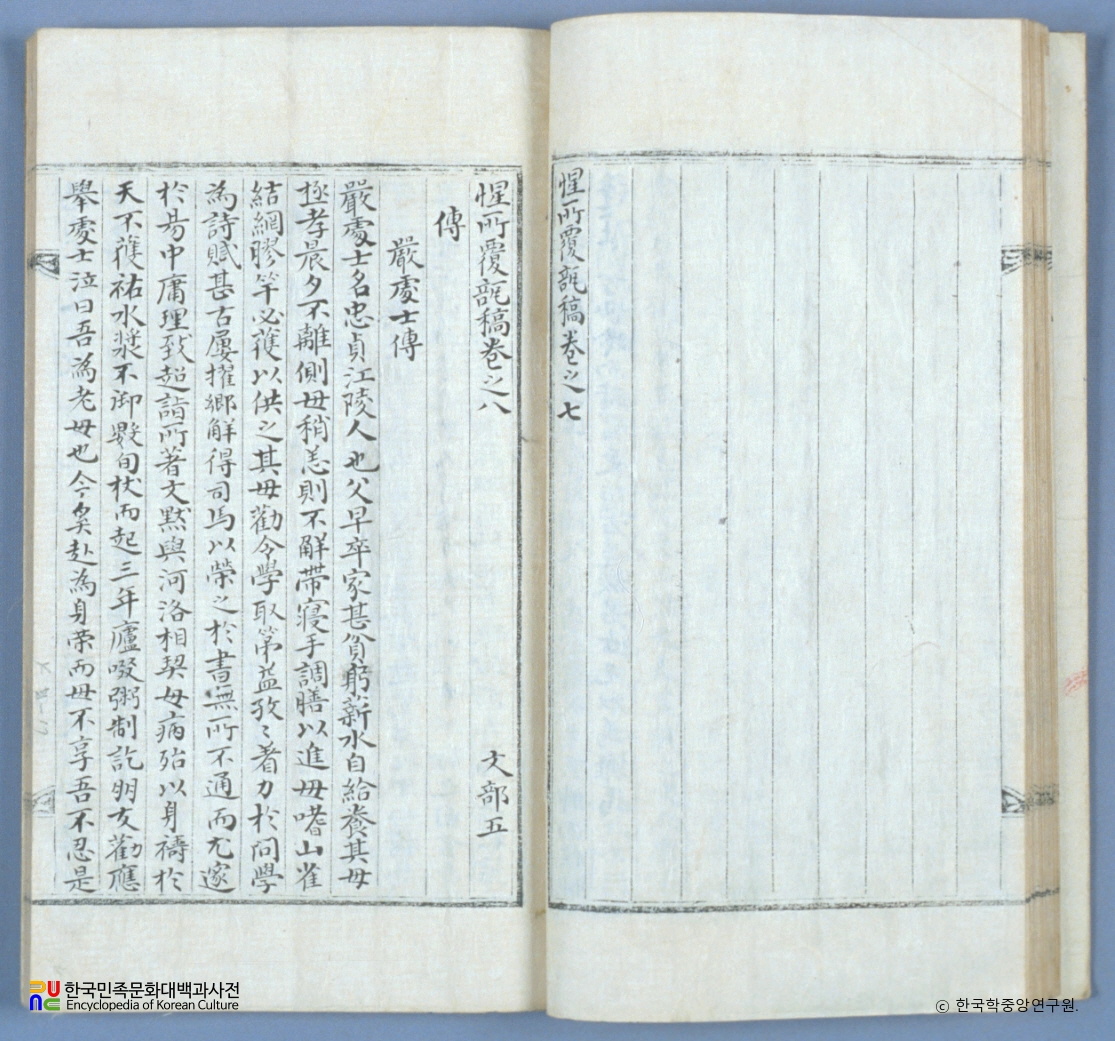 惺所覆瓿稿卷之七
惺所覆瓿稿卷之八 文部五
傳
嚴處士傳
嚴處士名忠貞江陵人也父早卒家甚貧躬薪水自給養其母
極孝晨夕不離側母稍恙則不解帶寢手調膳以進母嗜山雀
結網膠竿必獲以供之其母勸令學取第益孜〻著力於問學
為詩賦甚古屢擢鄉解得司馬以榮之於書無所不通而尤邃
於易中庸理致超詣所著文默與河洛相契母病殆以身禱於
天不獲祐水漿不御數旬杖而起三年廬啜粥制訖朋友勸應
舉處士泣曰吾為老母也今奚赴為身榮而母不享吾不忍是
한국민족문화대백과사전
Encyclopedia of Korean Culture
ⓒ 한국학중앙연구원.